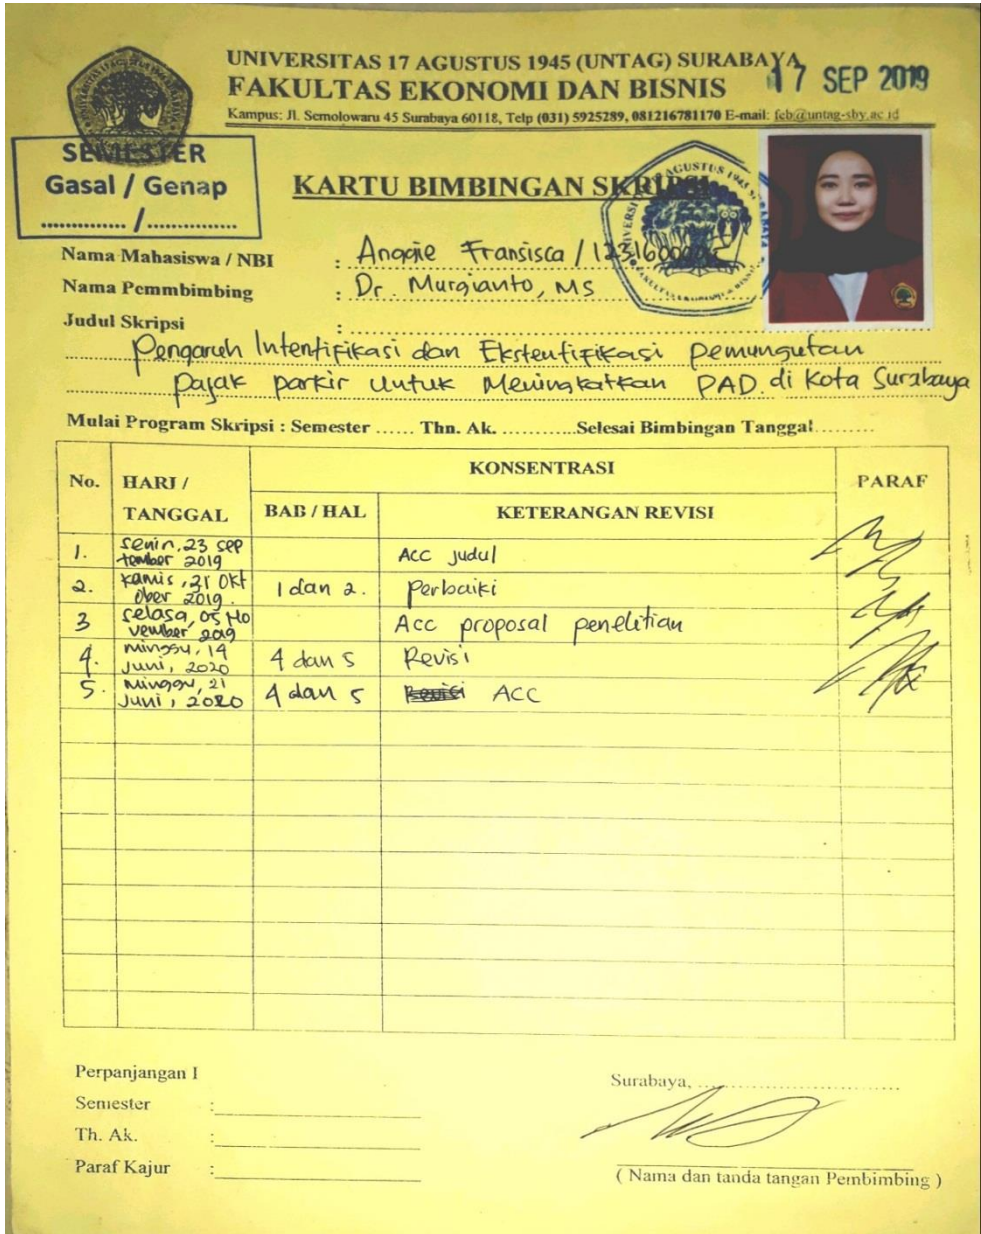 UNIVERSITAS 17 AGUSTUS 1945 (UNTAG) SURABAYA
17 SEP 2019
FAKULTAS EKONOMI DAN BISNIS
Kampus: Jl. Semolowaru 45 Surabaya 60118, Telp (031) 5925289, 081216781170 E-mail: feb@untag-sby.ac.id
SEMESTER
Gasal / Genap
............... / ...............
KARTU BIMBINGAN SKRIPSI
Nama Mahasiswa / NBI : Anggie Fransisca /
Nama Pemmbimbing : Dr. Murgianto, MS
Judul Skripsi :
Pengaruh Intentifikasi dan Ekstentifikasi pemungutan
pajak parkir untuk Meningkatkan PAD. di Kota Surabaya
Mulai Program Skripsi : Semester ...... Thn. Ak. ............Selesai Bimbingan Tanggal.........
No. HARI / TANGGAL KONSENTRASI PARAF
BAB / HAL KETERANGAN REVISI
1. senin, 23 sep
tember 2019 Acc judul
2. kamis, 31 Okt
ober 2019. 1 dan 2. perbaiki
3 selasa, 05 No
vember 2019 Acc proposal penelitian
4. minggu, 14
Juni, 2020 4 dan 5 Revisi
5. Minggu, 21
Juni, 2020 4 dan 5 Revisi ACC
Perpanjangan I
Semester :
Th. Ak. :
Paraf Kajur :
Surabaya, ...............................
( Nama dan tanda tangan Pembimbing )